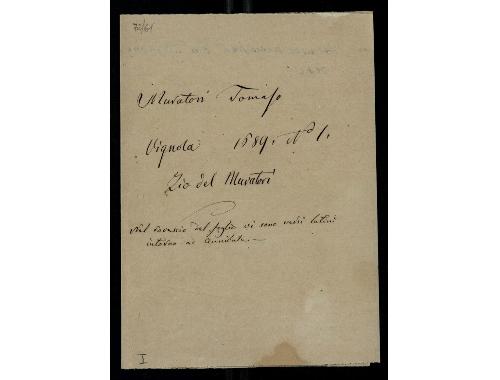 Muratori Tomaso
Vignola 1689. N° 1.
Zio del Muratori
Nel rovescio del foglio vi sono versi latini
intorno ad Annibale.—
I